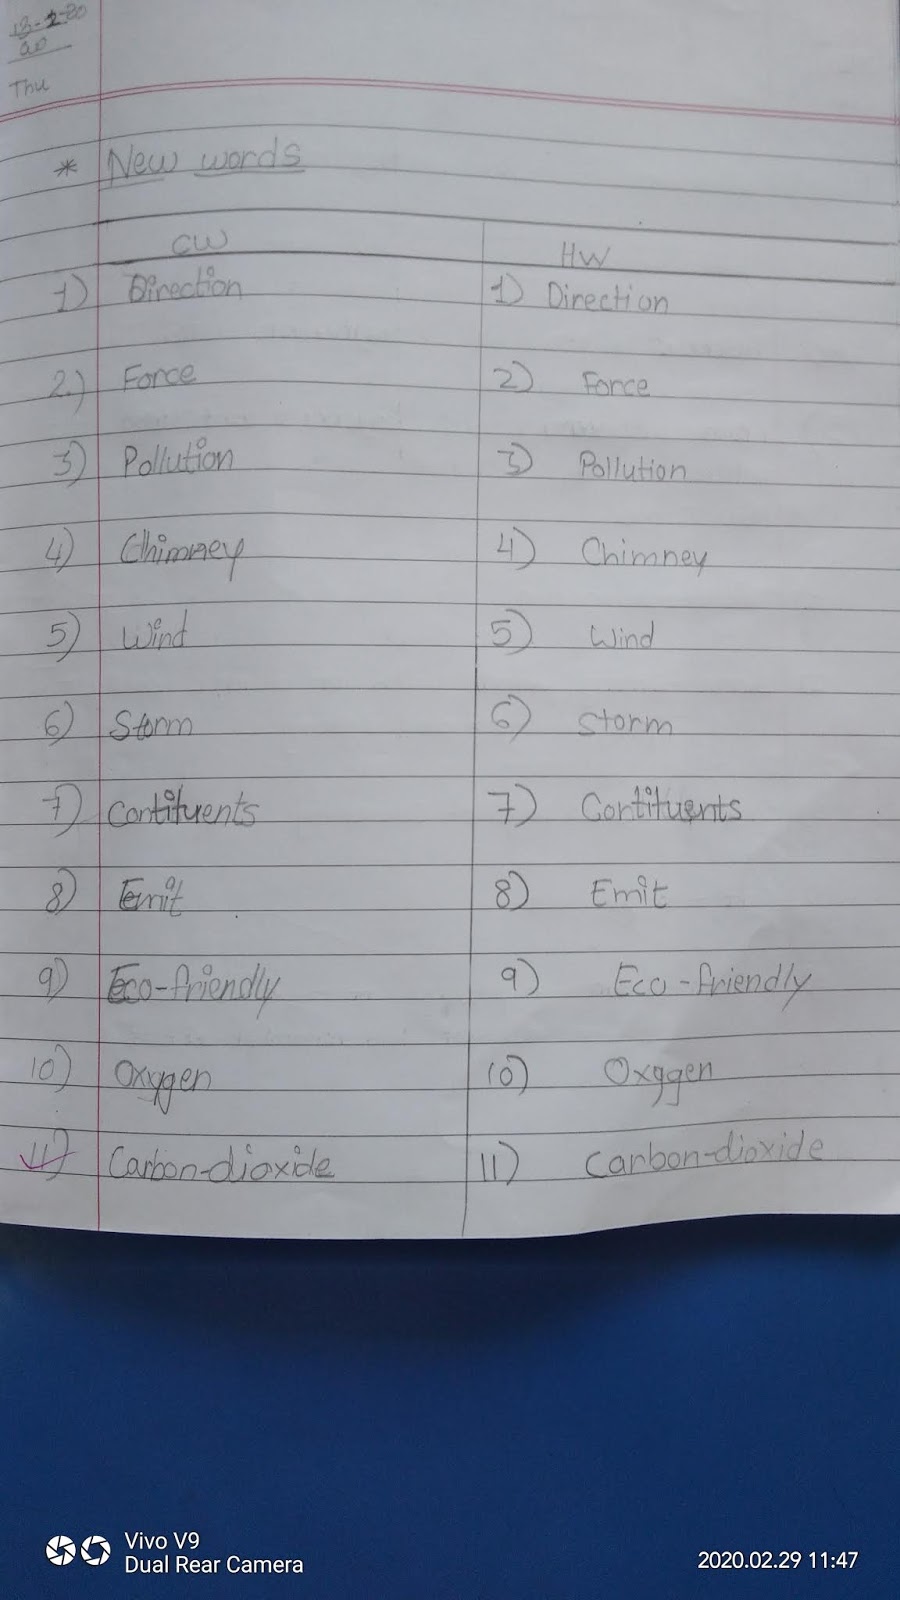 13-2-20
20
Thu
* New words
CW HW
1) Direction 1) Direction
2.) Force 2) Force
3) Pollution 3) Pollution
4) Chimney 4) Chimney
5) Wind 5) Wind
6) Storm 6) Storm
7) Contituents 7) Contituents
8) Emit 8) Emit
9) Eco-friendly 9) Eco-friendly
10) Oxygen 10) Oxygen
11) Carbon-dioxide 11) Carbon-dioxide
Vivo V9
Dual Rear Camera 2020.02.29 11:47